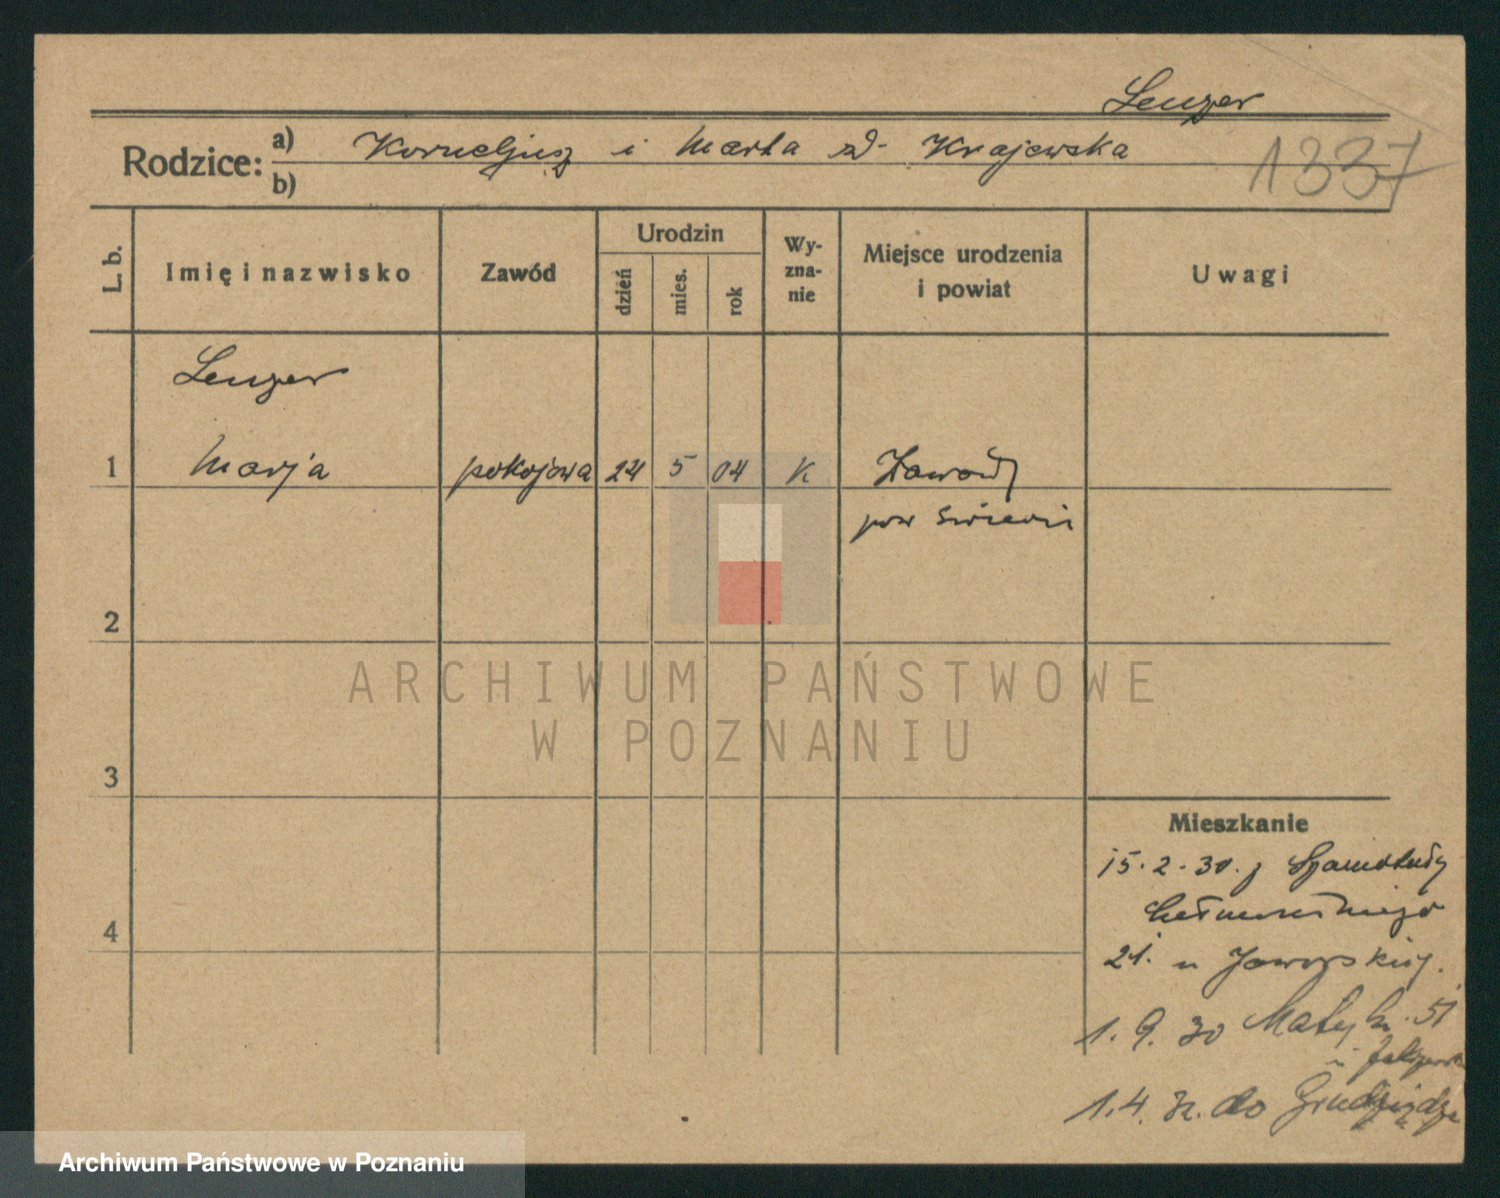 Lenzer
Rodzice: a) Korneljusz i Marta zd. Krajewska
b)
1337
L. b.
Imię i nazwisko
Zawód
Urodzin
dzień
mies.
rok
Wy-
zna-
nie
Miejsce urodzenia
i powiat
Uwagi
Lenzer
1 Marja pokojowa 24 5 04 K Zawady
pow Świecie
2
3
4
Mieszkanie
15.2.30. z Szamotuły
21. u Jaworskiej.
1.9.30 Matejki 51
u
1.4.32. do Grudziądza
ARCHIWUM PAŃSTWOWE
W POZNANIU
Archiwum Państwowe w Poznaniu